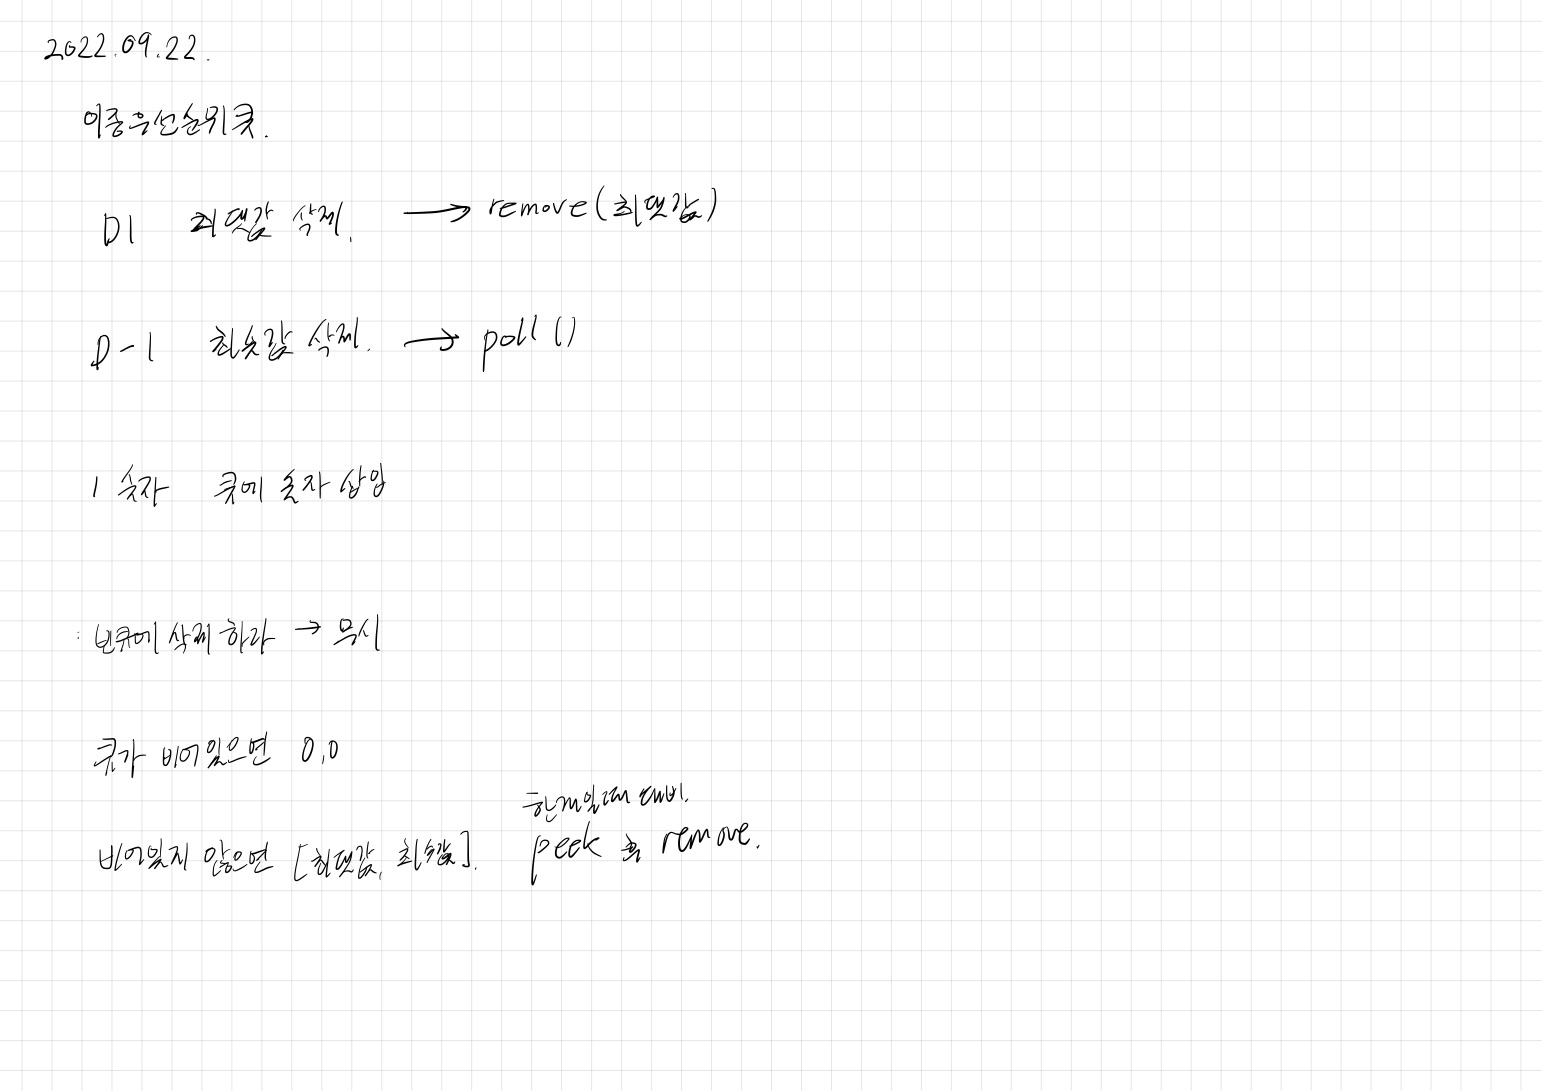 2022.09.22.
이중우선순위큐.
D1 최댓값 삭제. → remove(최댓값)
D-1 최솟값 삭제. → poll()
1 숫자 큐에 숫자 삽입
빈큐에 삭제하라 → 무시
큐가 비어있으면 0,0
한개일때 대비.
비어있지 않으면 [최댓값, 최솟값]. peek 후 remove.